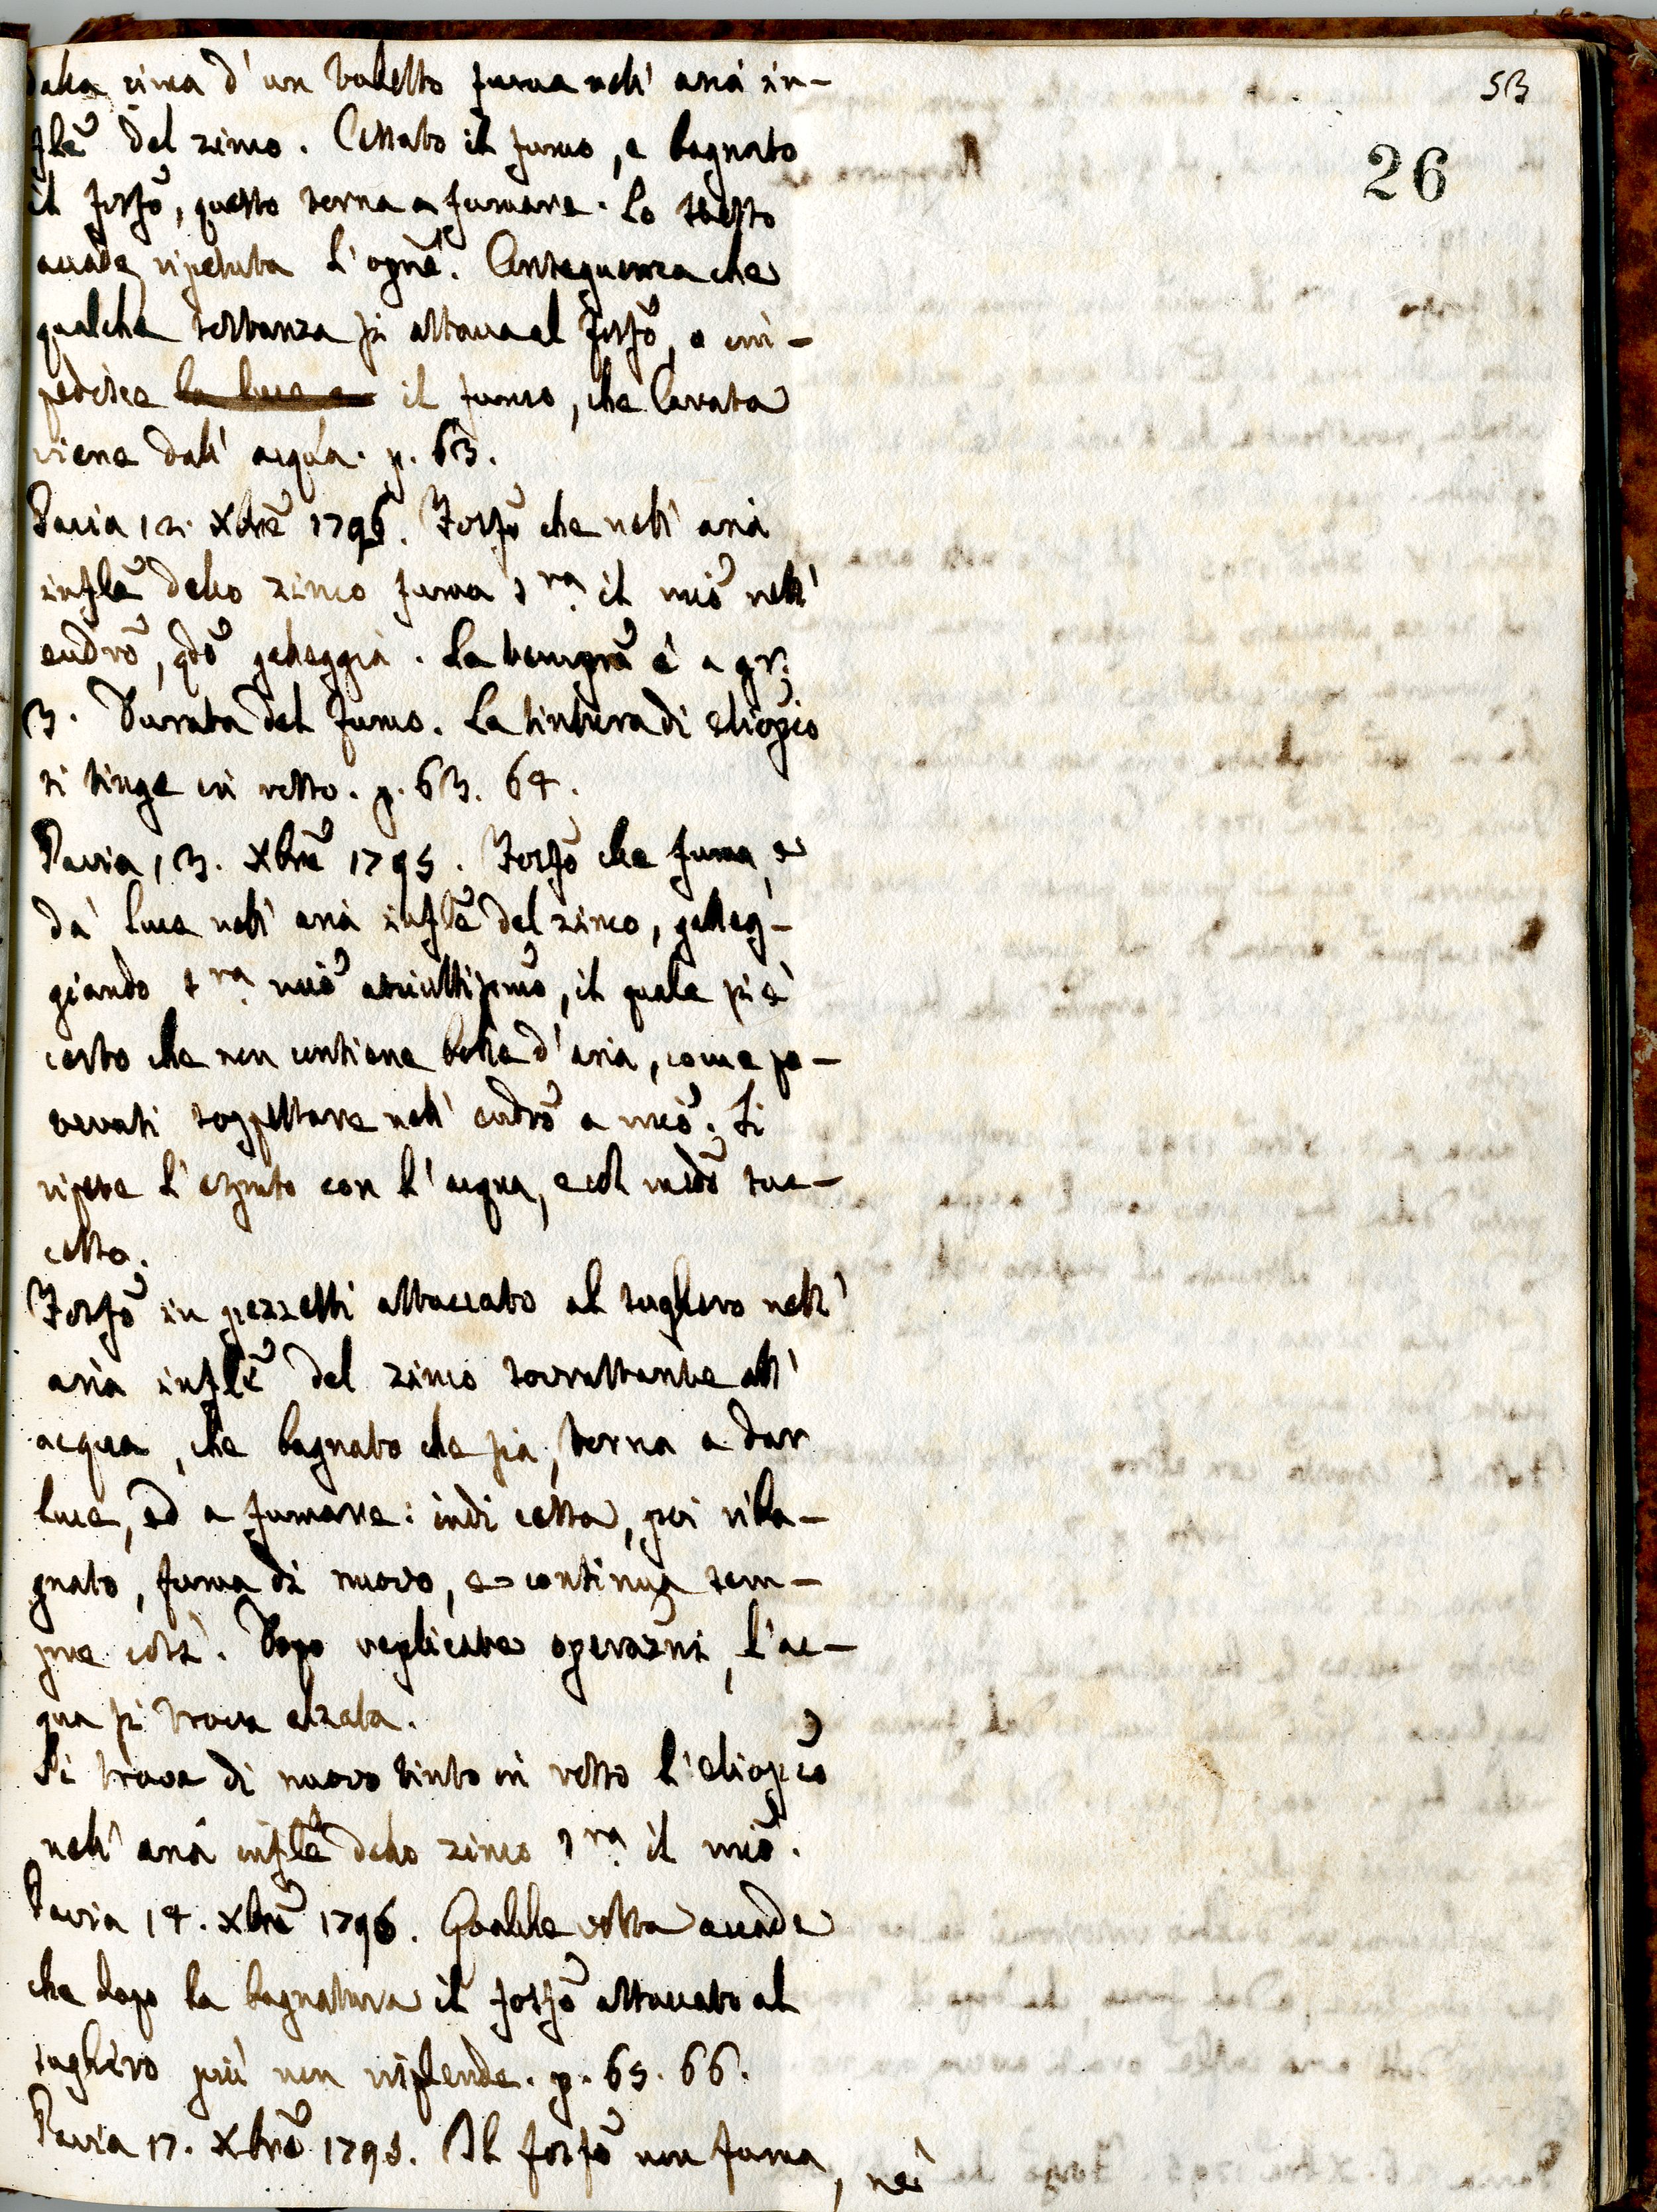 53
26
dalla cima d'un tubetto fuma nell'aria in-
flẽ del zinco. Cessato il fumo, e bagnato
il fosfõ, questo torna a fumare. Lo stesso
accade ripetuta l'ognẽ. Conseguenza che
qualche sostanza si attacca al fosfõ, e im-
pedisce la luce e il fumo, che levata
viene dall'acqua. p. 63.
Pavia 12. Xbrẽ 1795. Fosfõ che nell'aria
inflẽ dello zinco fuma sra il miõ nell'
eudrõ, qdõ galeggia. La tempra è a gr.
3. Durata del fumo. La tintura di eliopio
si tinge in rosso. p. 63. 64.
Pavia 13. Xbrẽ 1795. Fosfõ che fuma, e
dà luce nell'aria inflẽ del zinco, galleg-
giando sra miõ asciuttissimo, il quale si è
certo che non contiene bolle d'aria, come po-
tevasi sospettare nell'eudrõ a miõ. Si
ripete l'esprnto con l'acqua, e col medõ suc-
cesso.
Fosfõ in pezzetti attaccato al sughero nell'
aria inflẽ del zinco sovrastante all'
acqua, che bagnato che sia, torna a dar
luce, ed a fumare: indi cessa, poi riba-
gnato, fuma di nuovo, e continua sem-
pre così. Dopo replicate operazni, l'ac-
qua si trova alzata.
Si trova di nuovo tinto in rosso l'eliopiõ
nell'aria inflẽ dello zinco sra il miõ.
Pavia 14. Xbrẽ 1795. Qualche volta accade
che dopo la bagnatura il fosfõ attaccato al
sughero più non risplende. p. 65. 66.
Pavia 17. Xbrẽ 1795. Il fosfõ non fuma, nè